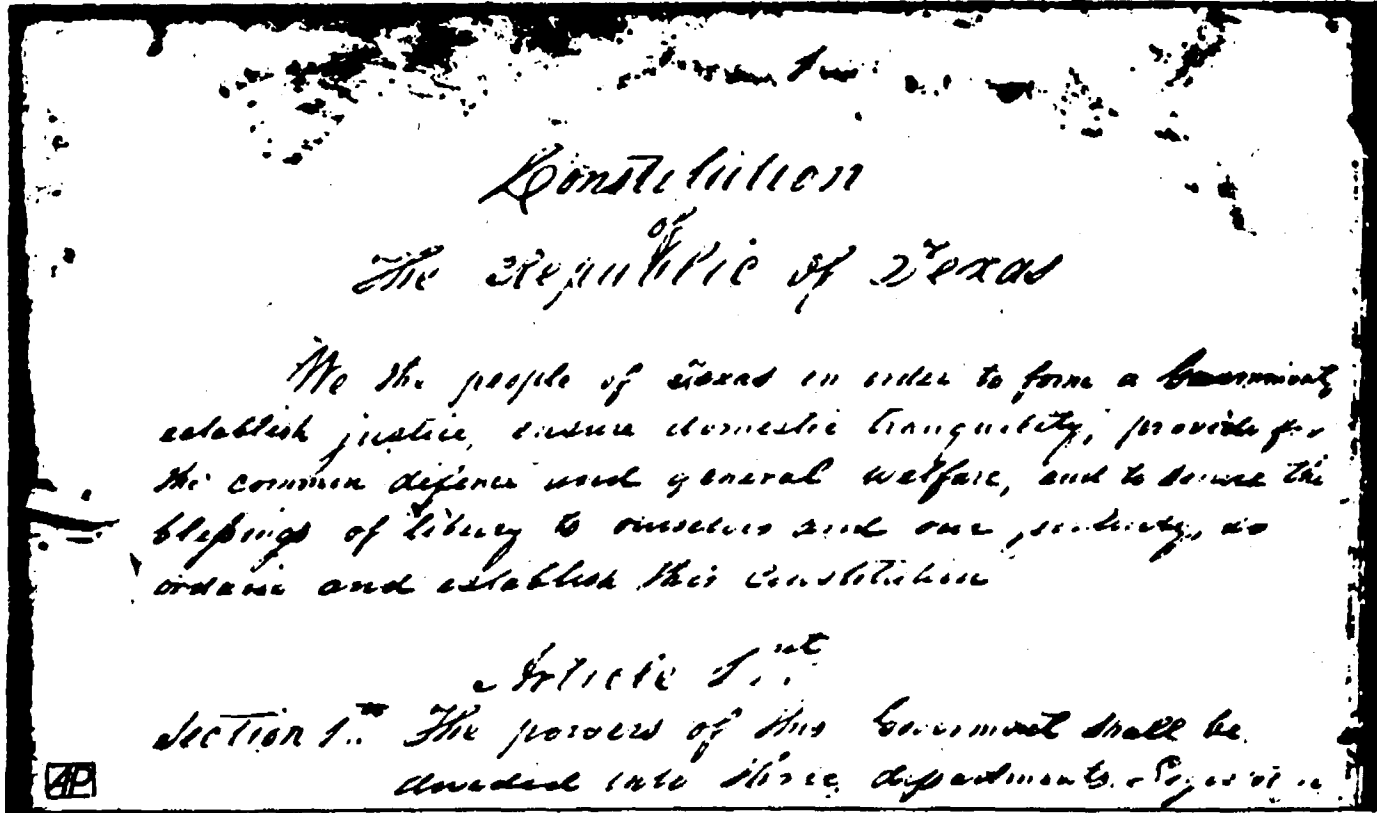 Constitution
of
The Republic of Texas
We the people of Texas in order to form a Government,
establish justice, ensure domestic tranquility, provide for
the common defence and general welfare, and to secure the
blessings of liberty to ourselves and our posterity, do
ordain and establish this Constitution
Article 1st
Section 1st The powers of this Government shall be
divided into three departments.
AP